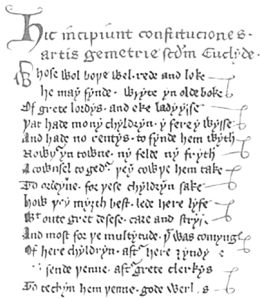 Hic incipiunt constituciones
artis gemetrie scdm Euclyde.
Whose wol boþe wel rede and loke
He may fynde wryte yn olde boke
Of grete lordys and eke ladyysse
Þat hade mony chyldryn y fere y wysse
And hade no rentys to fynde hem wyth
Nowþer yn towne ny felde ny fryth
A cownsel togedᵉr þey cowþe hem take
To ordeyne for þese chyldryn sake
How þey myȝth best lede here lyfe
Wᵗoute gret desese care and stryf
And most for þe multytude þᵗ was comyng
Of here chyldryn aftᵉr here ȝyndy
sende þenne aftᵉr grete clerkys
To techyn hem þenne gode werk s